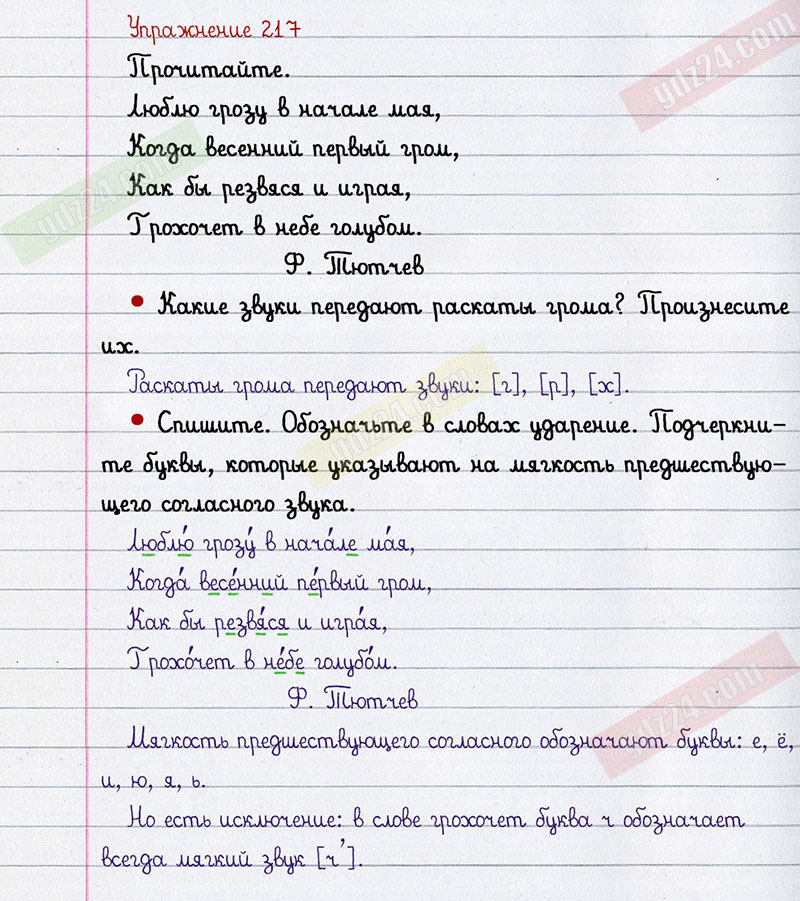 Упражнение 217
gdz24.com
Прочитайте.
Люблю грозу в начале мая,
Когда весенний первый гром,
gdz24.com
Как бы резвяся и играя,
Грохочет в небе голубом.
Ф. Тютчев
• Какие звуки передают раскаты грома? Произнесите
их.
Раскаты грома передают звуки: [г], [р], [х].
gdz24.com
• Спишите. Обозначьте в словах ударение. Подчеркни-
те буквы, которые указывают на мягкость предшествую-
щего согласного звука.
Люблю́ грозу́ в нача́ле ма́я,
Когда́ весе́нний пе́рвый гром,
Как бы резвя́ся и игра́я,
Грохо́чет в не́бе голубо́м.
Ф. Тютчев
gdz24.com
Мягкость предшествующего согласного обозначают буквы: е, ё,
и, ю, я, ь.
Но есть исключение: в слове грохочет буква ч обозначает
всегда мягкий звук [ч’].